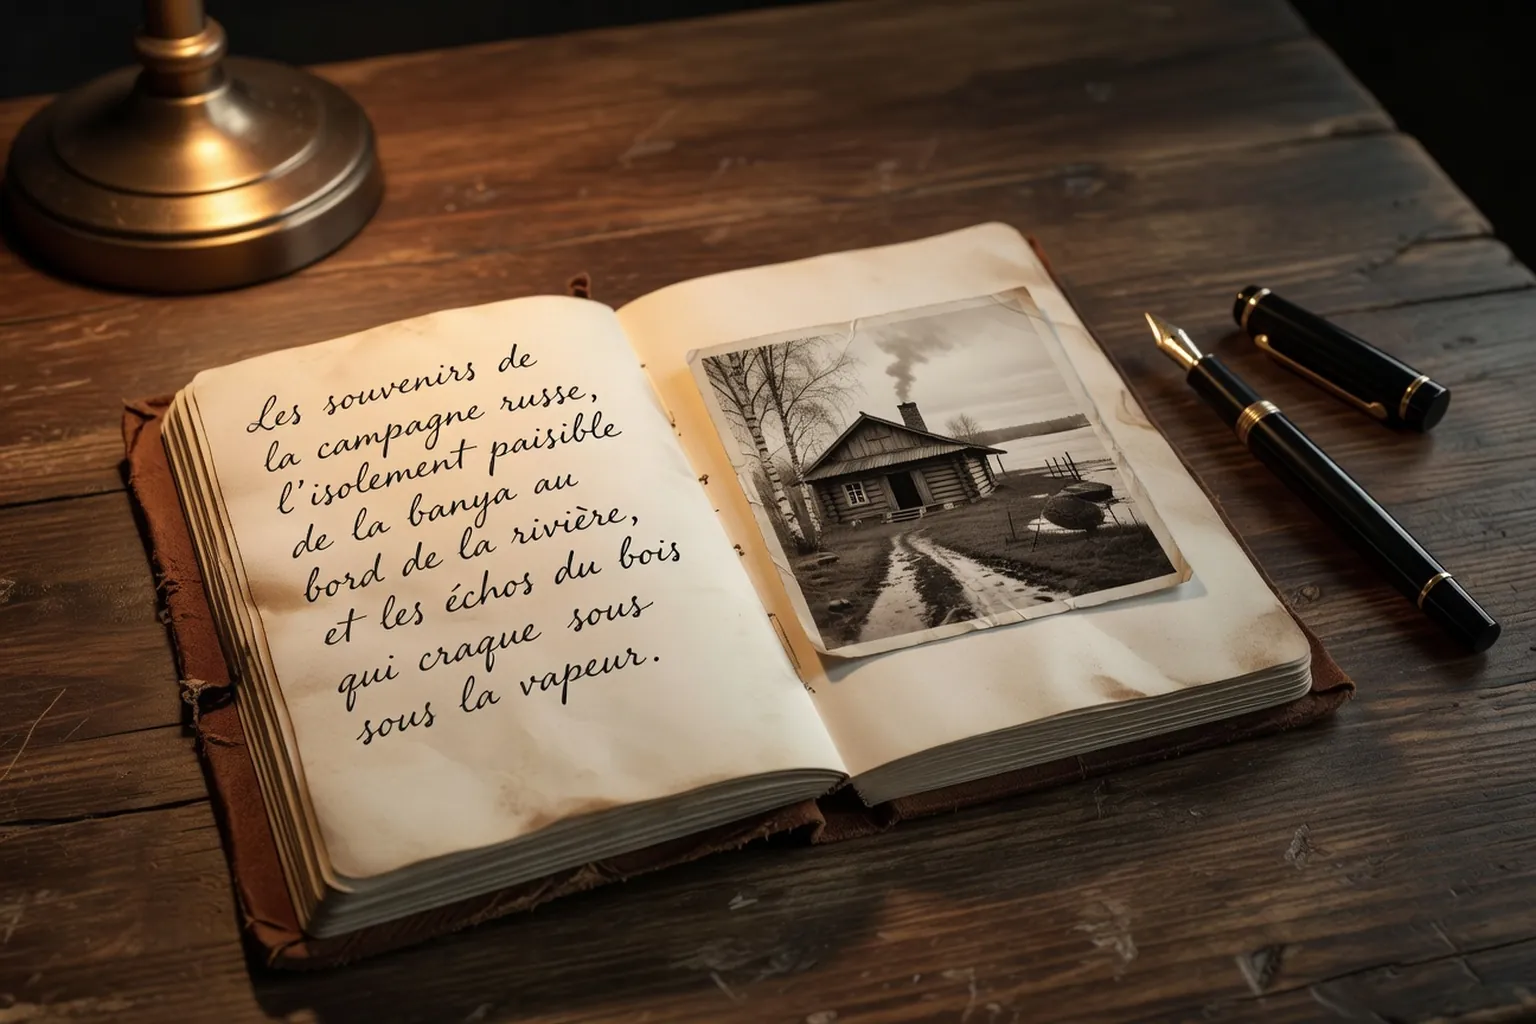 Les souvenirs de
la campagne russe,
l'isolement paisible
de la banya au
bord de la rivière,
et les échos du bois
qui craque sous
sous la vapeur.